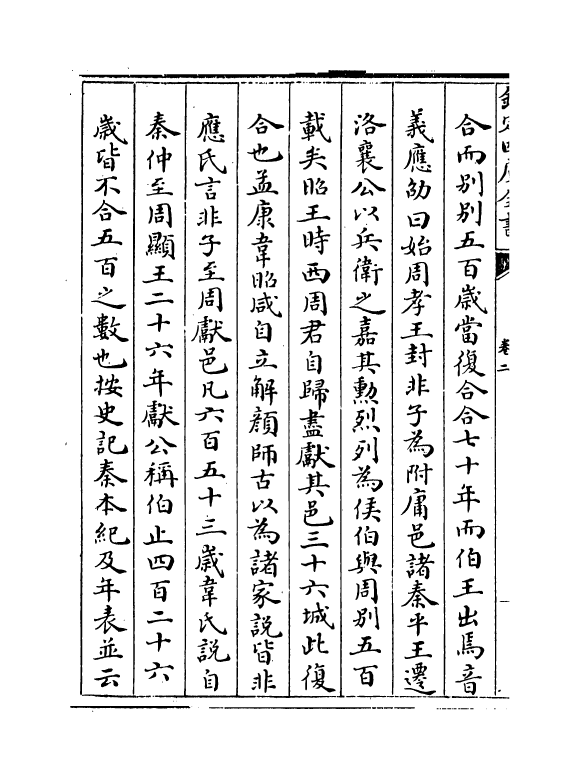 欽定四庫全書
卷二
合而別別五百歳當復合合七十年而伯王出焉音
義應劭曰始周孝王封非子為附庸邑諸秦平王遷
洛襄公以兵衛之嘉其勲烈列為侯伯與周別五百
載矣昭王時西周君自歸盡獻其邑三十六城此復
合也孟康韋昭咸自立解顔師古以為諸家説皆非
應氏言非子至周獻邑凡六百五十三歳韋氏説自
秦仲至周顯王二十六年獻公稱伯止四百二十六
歳皆不合五百之數也按史記秦本紀及年表並云